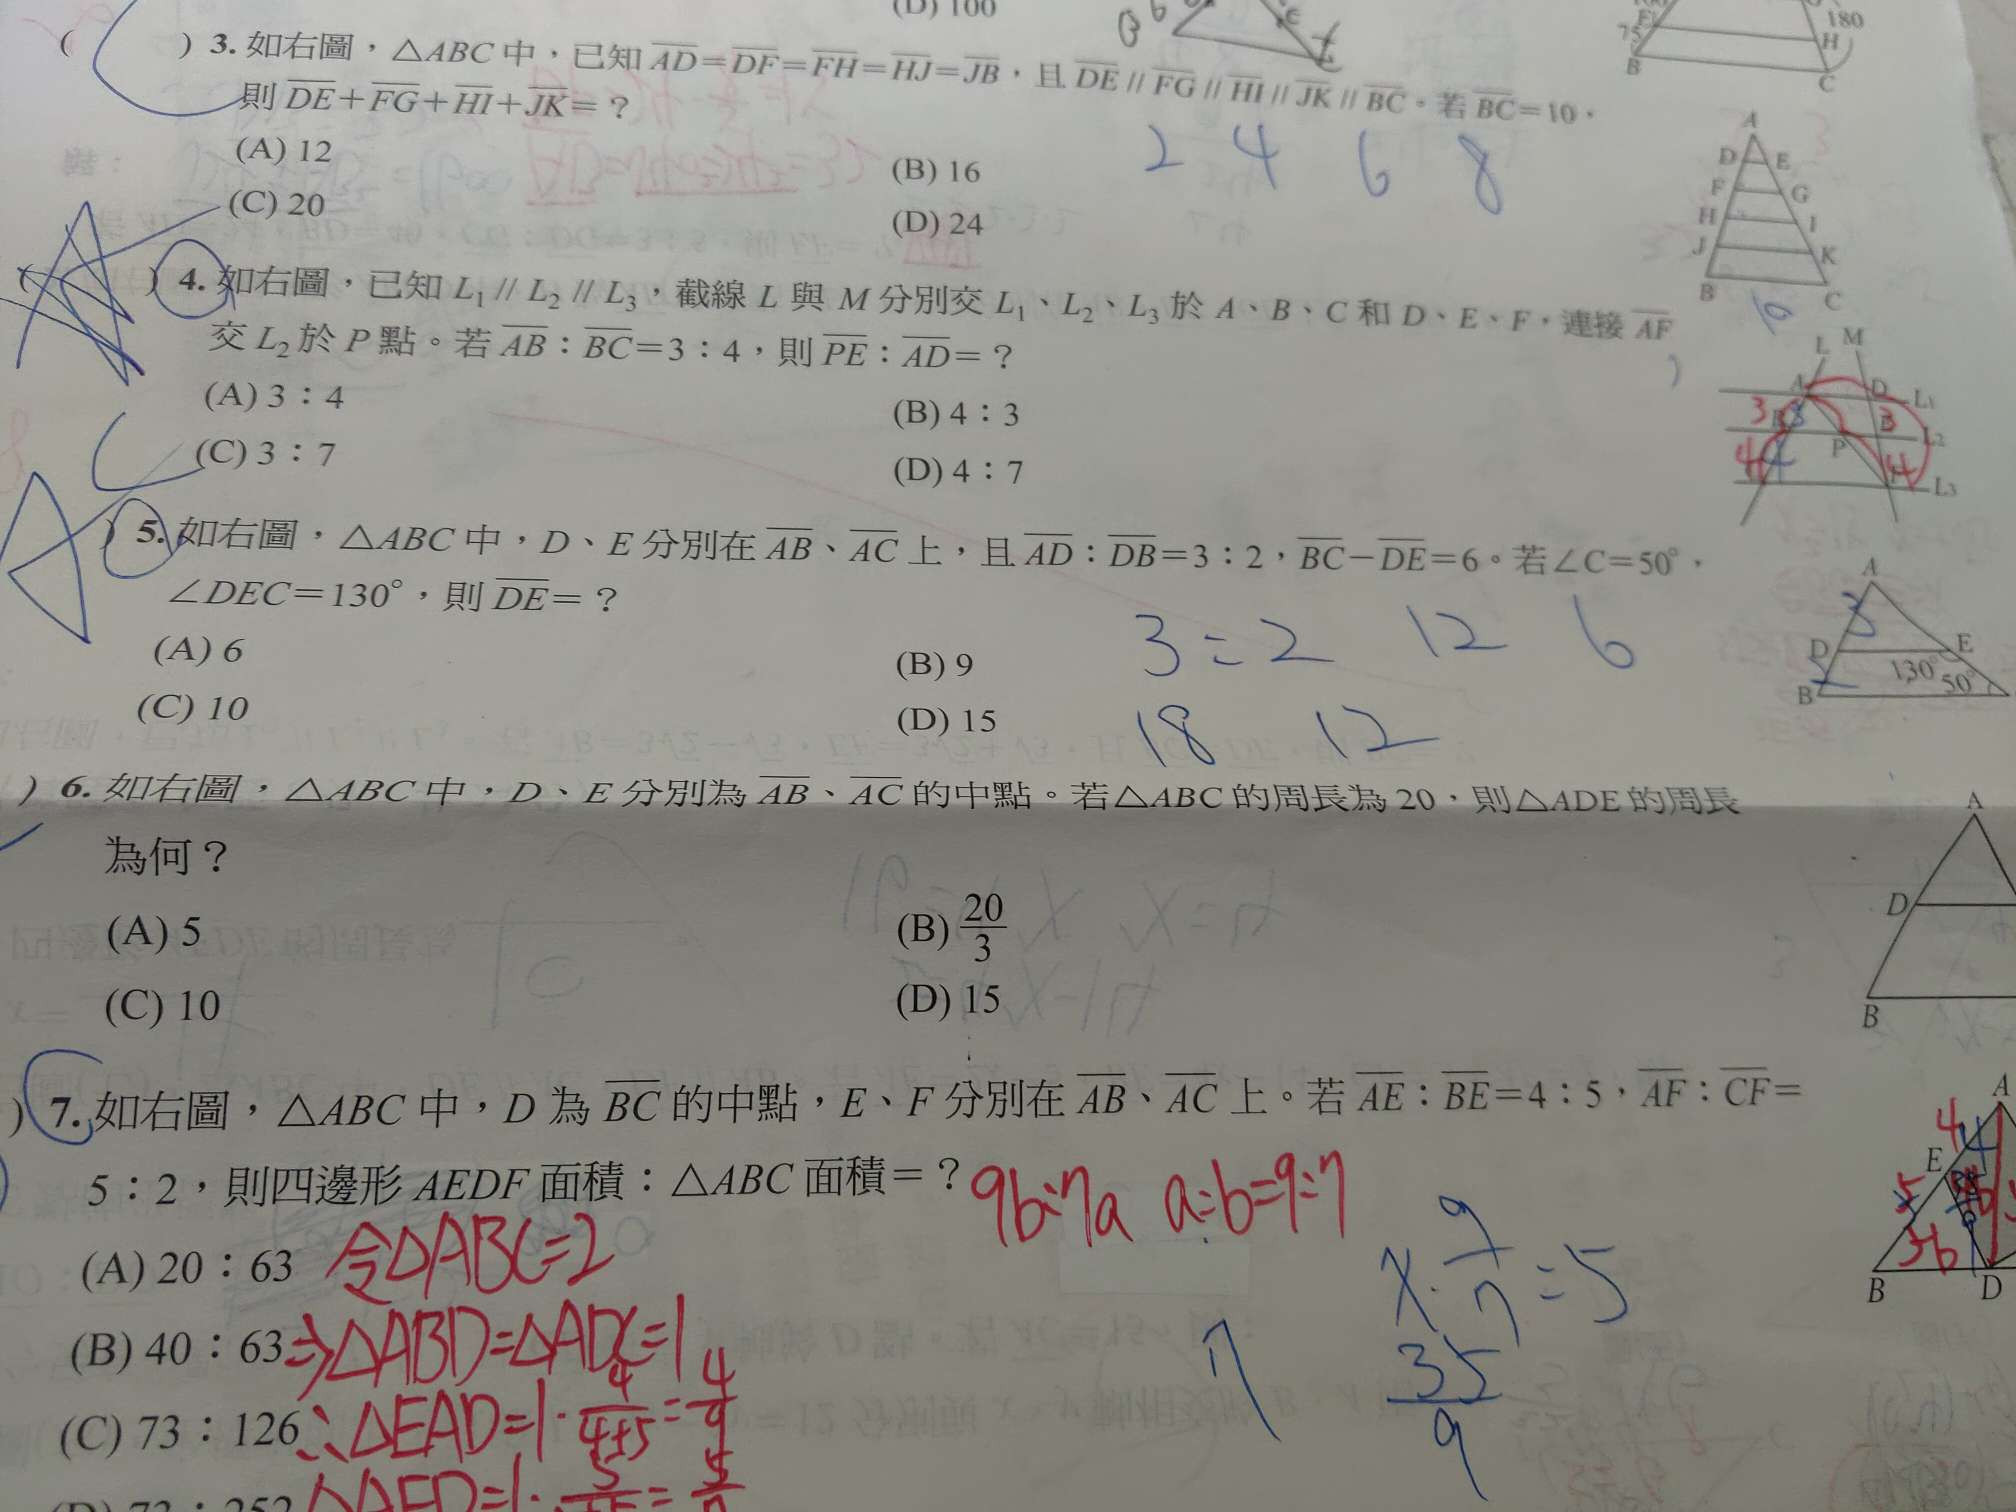 (D) 100
(　) 3. 如右圖，△ABC 中，已知 AD=DF=FH=HJ=JB，且 DE // FG // HI // JK // BC。若 BC=10，
則 DE+FG+HI+JK=？
(A) 12
(B) 16
(C) 20
(D) 24
2 4 6 8
(　) 4. 如右圖，已知 L₁ // L₂ // L₃，截線 L 與 M 分別交 L₁、L₂、L₃ 於 A、B、C 和 D、E、F，連接 AF
交 L₂ 於 P 點。若 AB：BC=3：4，則 PE：AD=？
(A) 3：4
(B) 4：3
(C) 3：7
(D) 4：7
) 5. 如右圖，△ABC 中，D、E 分別在 AB、AC 上，且 AD：DB=3：2，BC−DE=6。若∠C=50°，
∠DEC=130°，則 DE=？
(A) 6
(B) 9
(C) 10
(D) 15
3:2 12 6
18 12
) 6. 如右圖，△ABC 中，D、E 分別為 AB、AC 的中點。若△ABC 的周長為 20，則△ADE 的周長
為何？
(A) 5
(B) 20/3
(C) 10
(D) 15
) 7. 如右圖，△ABC 中，D 為 BC 的中點，E、F 分別在 AB、AC 上。若 AE：BE=4：5，AF：CF=
5：2，則四邊形 AEDF 面積：△ABC 面積=？
9b=7a a:b=9:7
(A) 20：63
令△ABC=2
(B) 40：63
⇒△ABD=△ADC=1
(C) 73：126
∴△EAD=1·4/(4+5)=4/9
x·9/7=5
35/9
180
75
B
H
C
A
D E
F G
H I
J K
B C
10
L M
A D L₁
3 3
P L₂
4 4
L₃
A
3
D E
2
B 130° 50°
A
D
B
A
4
E
5
5b
B D